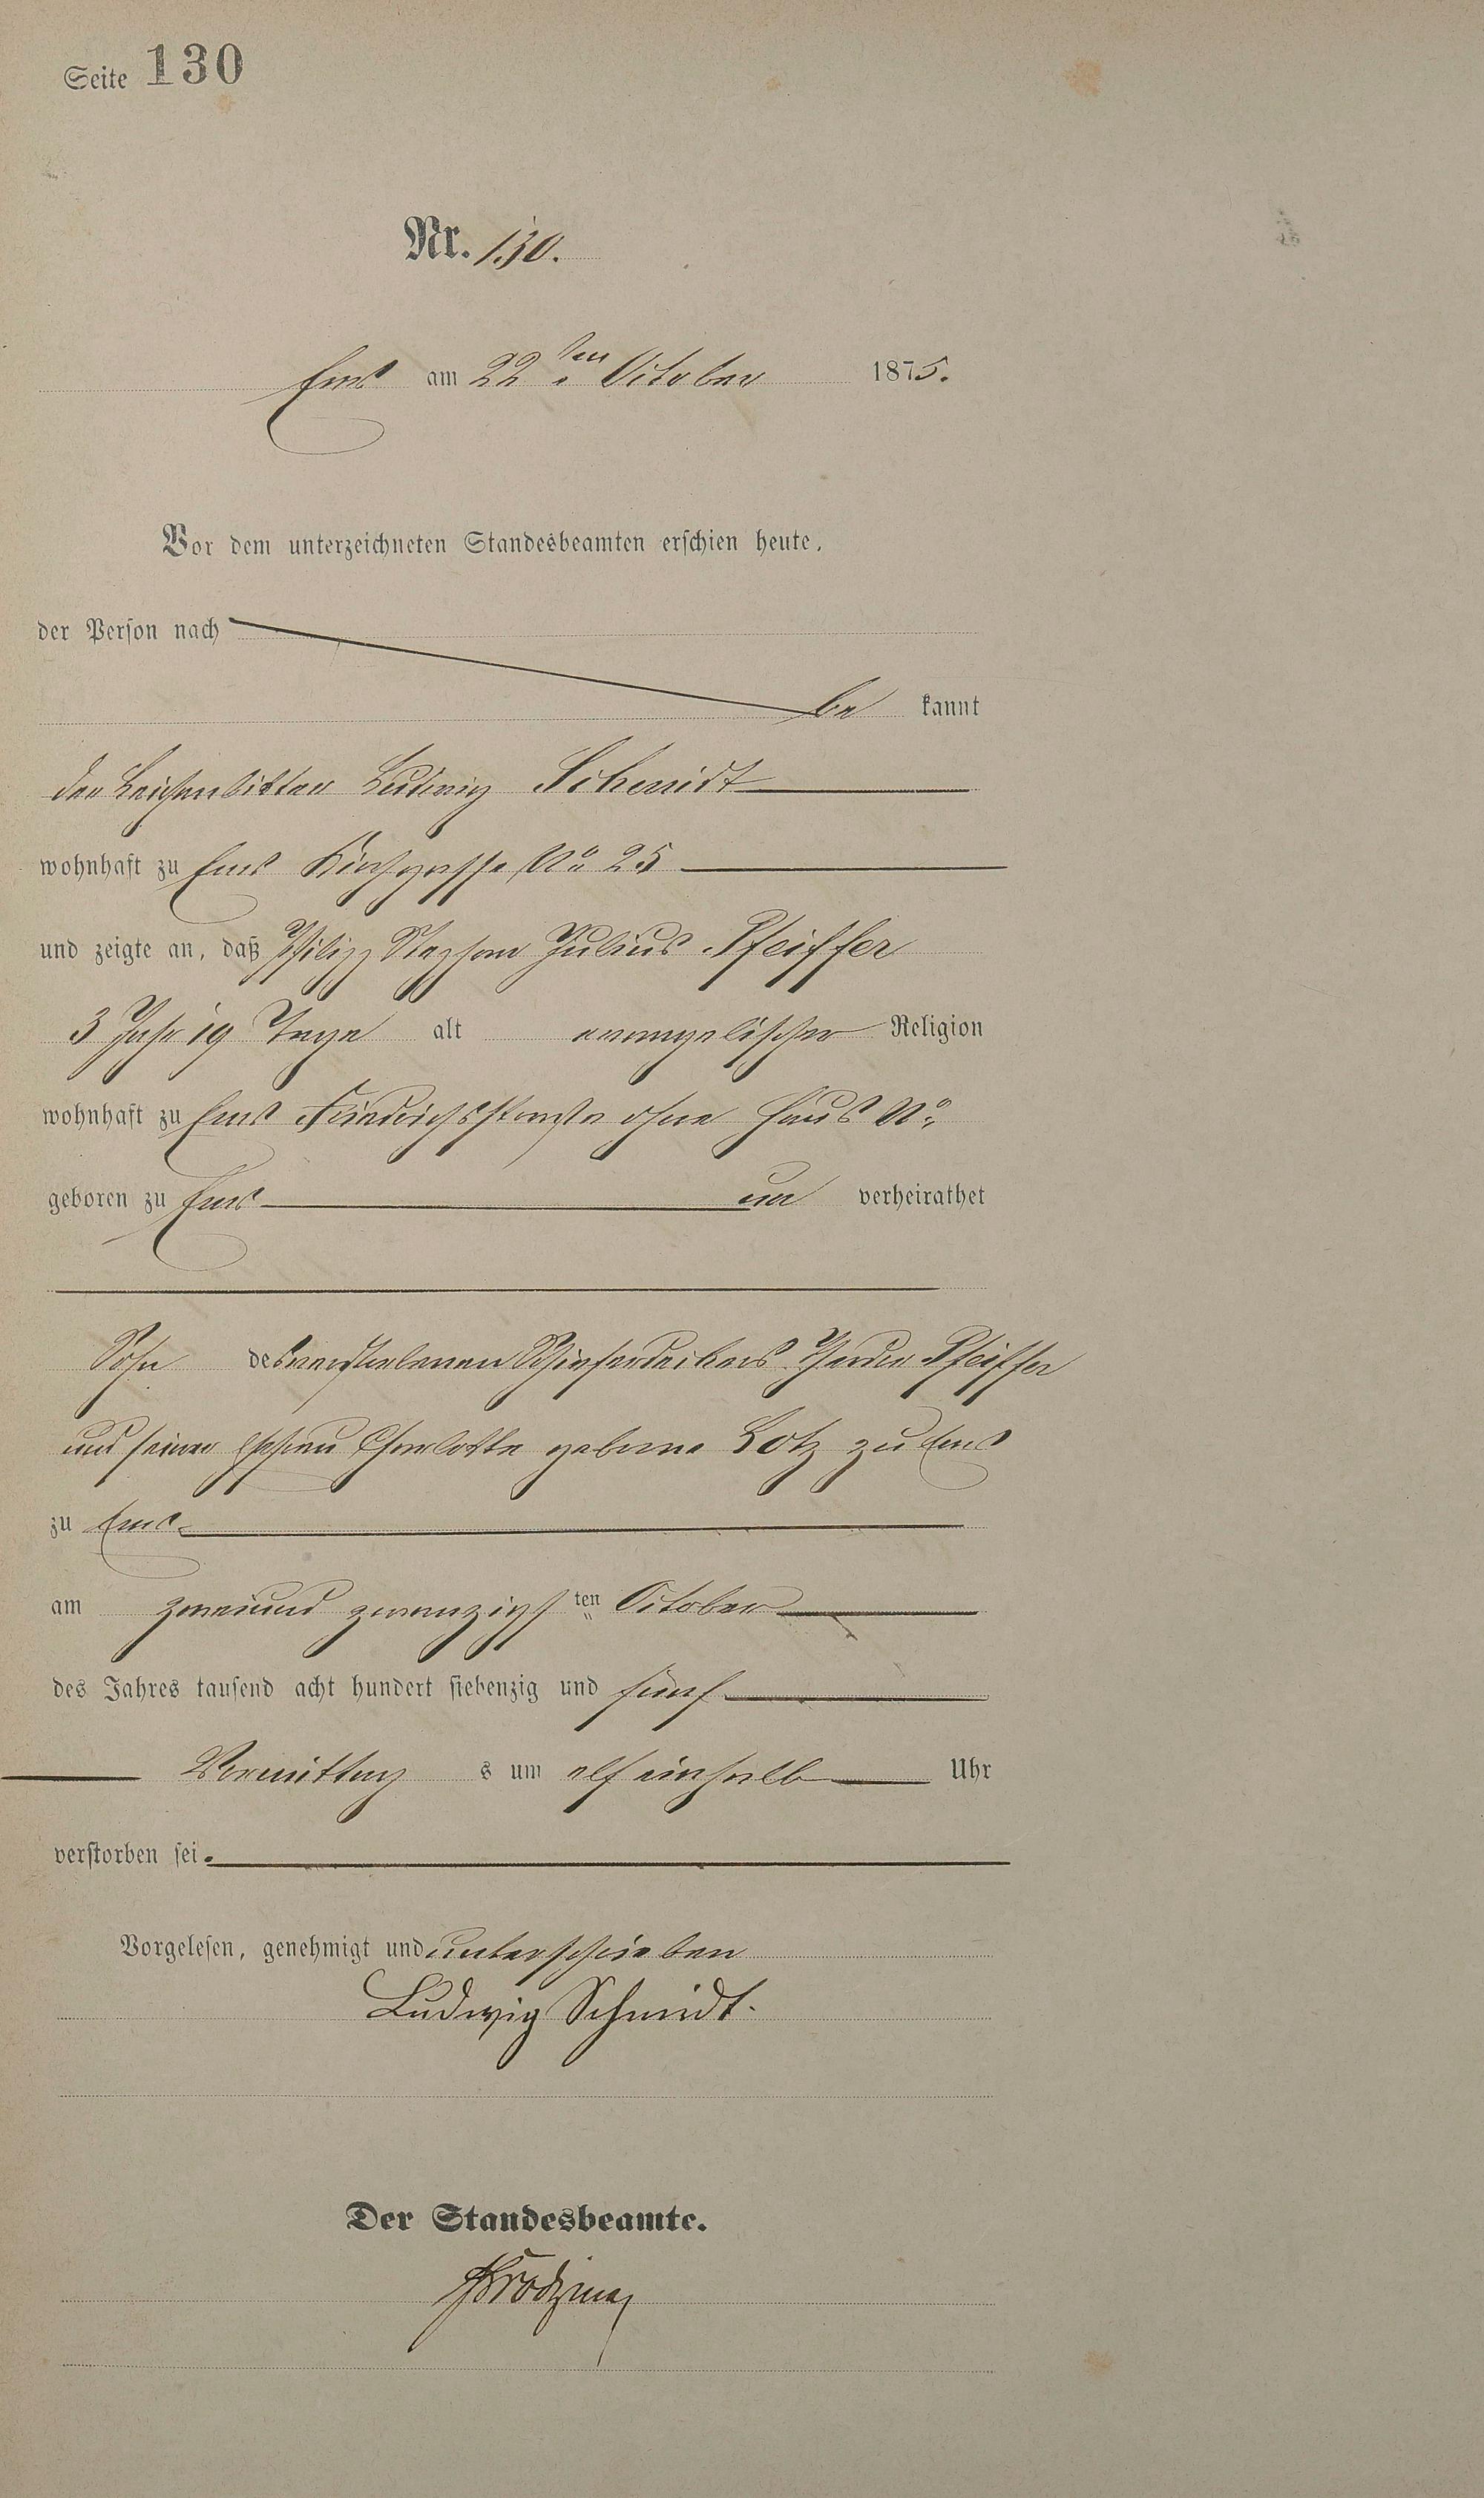 Seite 130
Nr. 130.
Ems am 22ten October 1875.
Vor dem unterzeichneten Standesbeamten erschien heute,
der Person nach
be kannt
der Leichenbitter Ludwig Schmidt
wohnhaft zu Ems Kirchgasse No 25
und zeigte an, daß Philipp Stephan Julius Pfeiffer
3 Jahr 19 Tage alt evangelischer Religion
wohnhaft zu Ems Friedrichsstraße ohne Haus No
geboren zu Ems un verheirathet
Sohn des verstorbenen Schieferdeckers Pfeiffer
und seiner Ehefrau Charlotte geborne Lotz zu Ems
zu Ems
am zweiund zwanzigsten October
des Jahres tausend acht hundert siebenzig und fünf
Vormittag s um elf einhalb Uhr
verstorben sei.
Vorgelesen, genehmigt und unterschrieben
Ludwig Schmidt.
Der Standesbeamte.